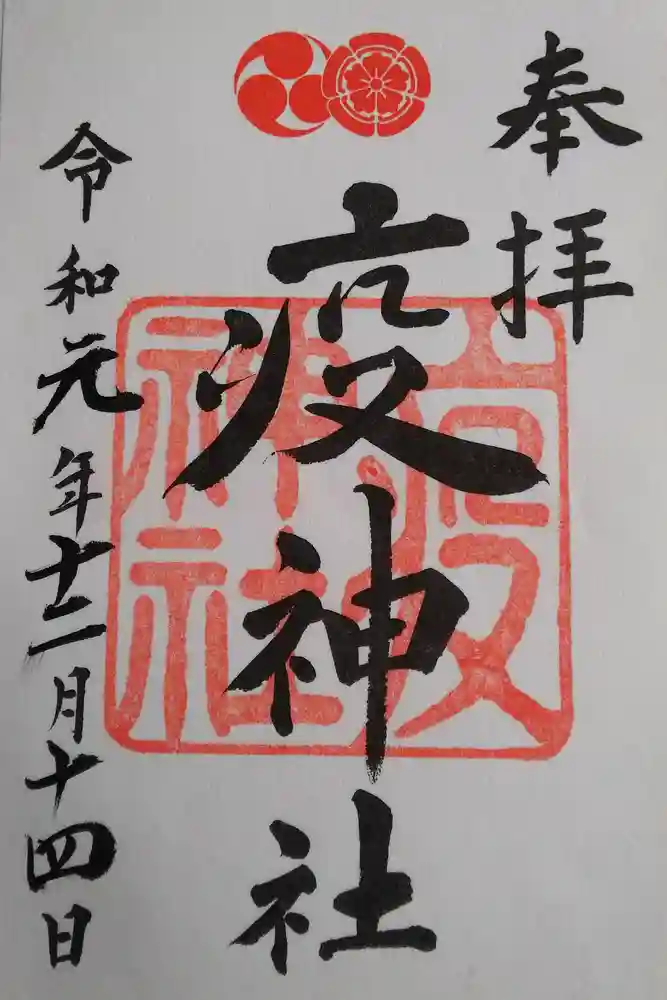 奉拝
疫神社
疫神社
令和元年十二月十四日